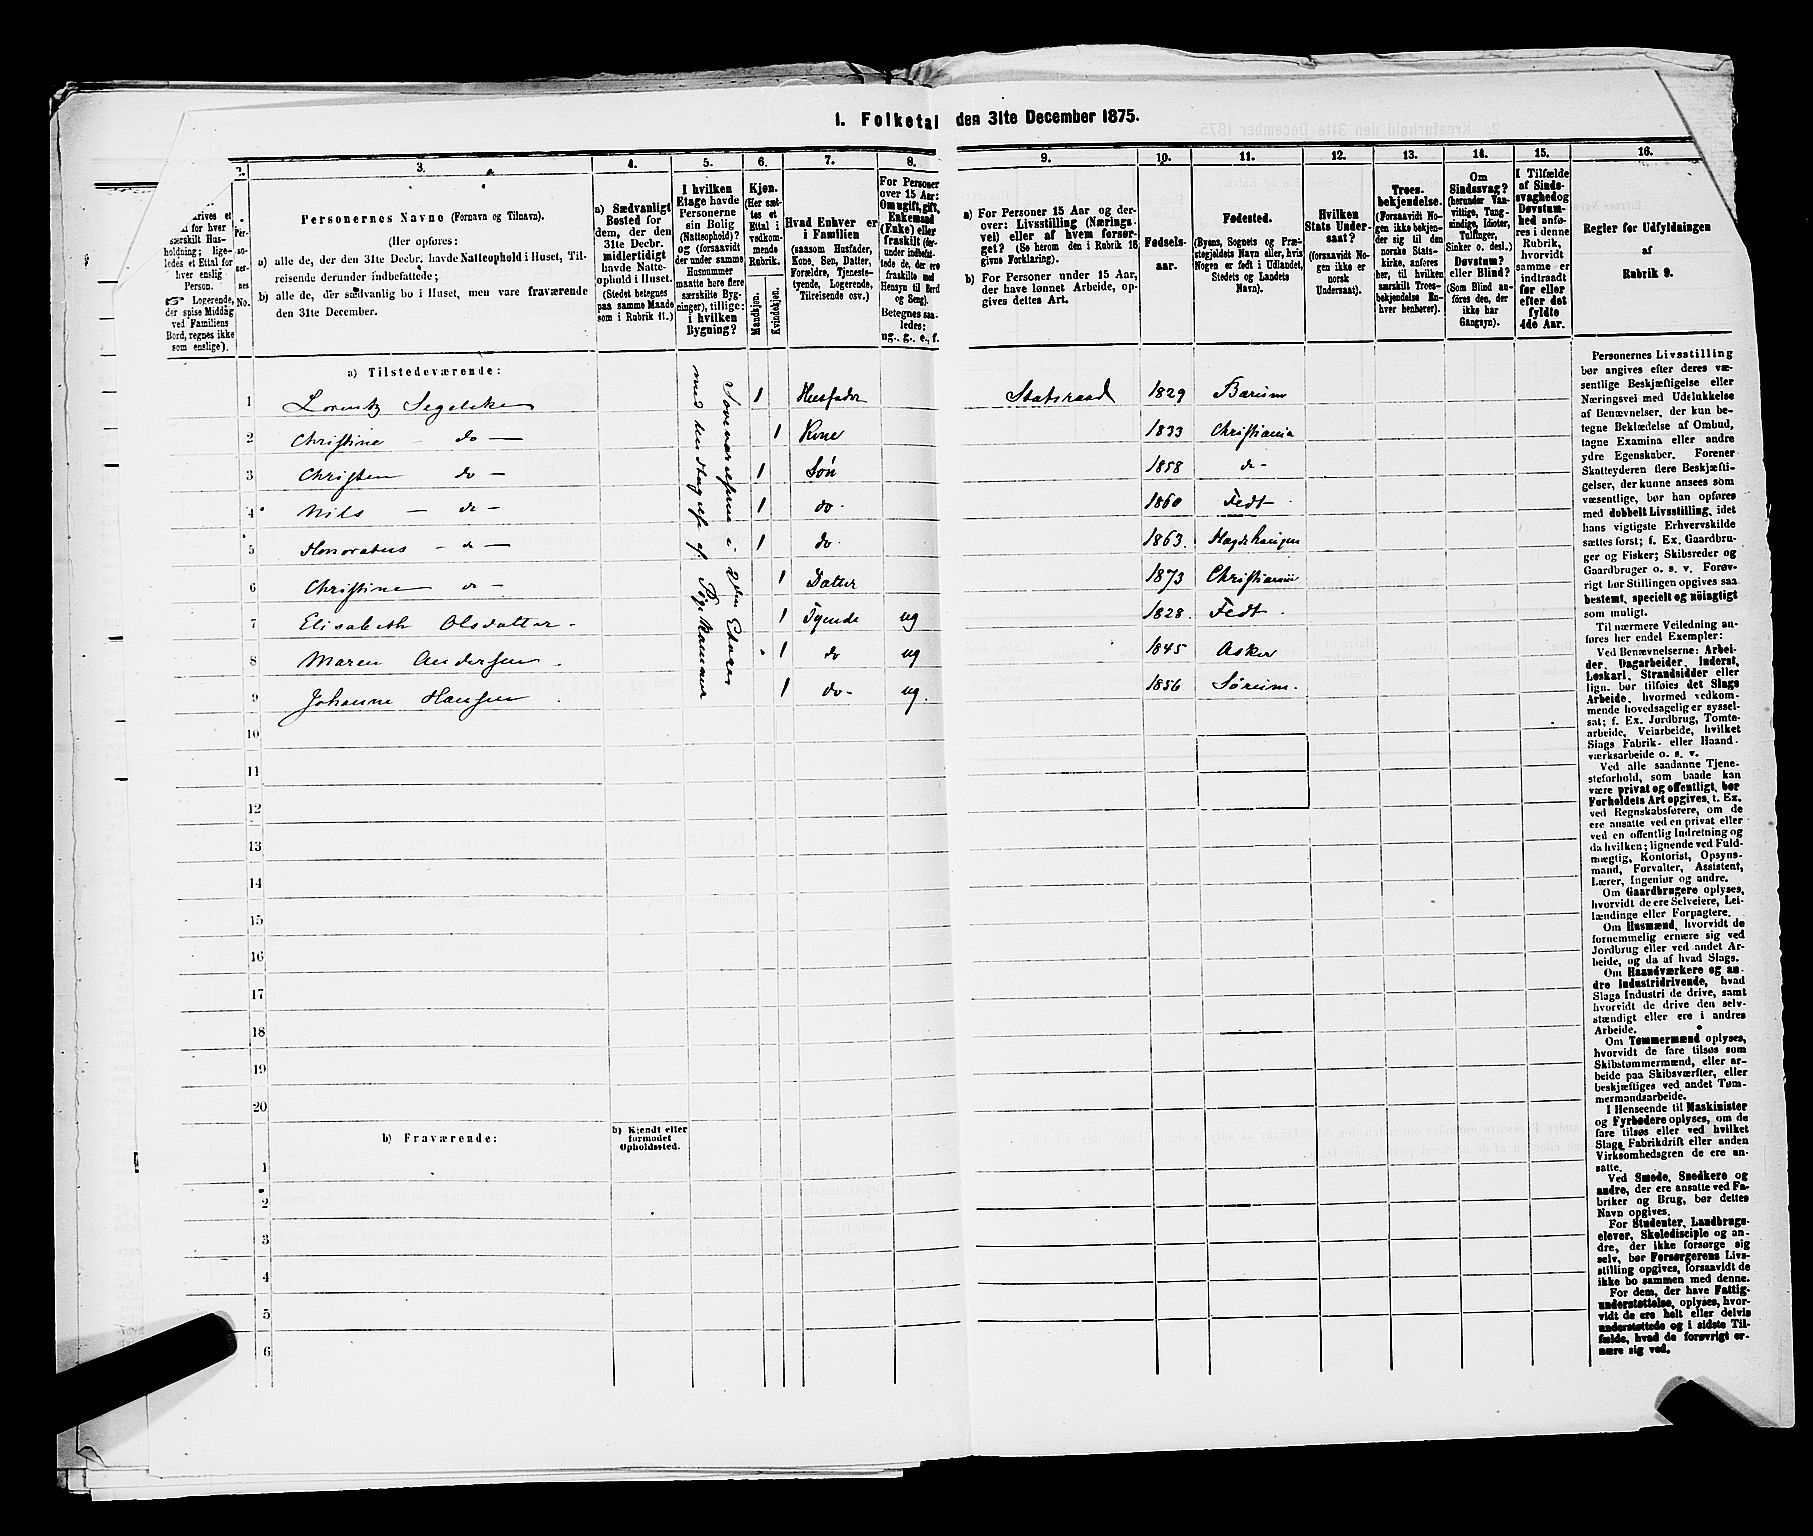 1. Folketal den 31te December 1875.
2.
3.
4.
5.
6.
7.
8.
9.
10.
11.
12.
13.
14.
15.
16.
rives et
tal for hver
særskilt Hus-
holdning; lige-
ledes et Ettal for
hver enslig
Person.
Logerende,
der spise Middag
ved Familiens
Bord, regnes ikke
som enslige).
Per-
so-
ner-
nes
No.
Personernes Navne (Fornavn og Tilnavn).
(Her opføres:
a) alle de, der den 31te Decbr. havde Natteophold i Huset, Til-
reisende derunder indbefattede;
b) alle de, der sædvanlig bo i Huset, men vare fraværende
den 31te December.
a) Sædvanligt
Bosted for
dem, der den
31te Decbr.
midlertidigt
havde Natte-
ophold i Huset.
(Stedet betegnes
paa samme Maade
som i Rubrik 11.)
I hvilken
Etage havde
Personerne
sin Bolig
(Natteophold)?
og (forsaavidt
der under samme
Husnummer
maatte høre flere
særskilte Byg-
ninger), tillige:
i hvilken
Bygning?
Kjøn.
(Her sæt-
tes et
Ettal i
vedkom-
mende
Rubrik.
Mandkjøn.
Kvindekjøn.
Hvad Enhver er
i Familien
(saasom Husfader,
Kone, Søn, Datter,
Forældre, Tjeneste-
tyende, Logerende,
Tilreisende osv.)
For Personer
over 15 Aar:
Om ugift, gift,
Enkemand
(Enke) eller
fraskilt (der-
under indbefat-
tede de, der ere
fraskilte med
Hensyn til Bord
og Seng).
Betegnes saa-
ledes:
ug., g., e., f.
a) For Personer 15 Aar og der-
over: Livsstilling (Nærings-
vei) eller af hvem forsør-
get? (Se herom den i Rubrik 16
givne Forklaring).
b) For Personer under 15 Aar,
der have lønnet Arbeide, op-
gives dettes Art.
Fødsels-
aar.
Fødested.
(Byens, Sognets og Præ-
stegjeldets Navn eller, hvis
Nogen er født i Udlandet,
Stedets og Landets
Navn).
Hvilken
Stats Under-
saat?
(forsaavidt No-
gen ikke er
norsk
Undersaat).
Troes-
bekjendelse.
(Forsaavidt No-
gen ikke bekjen-
der sig til den
norske Stats-
kirke, anføres
her, til hvilken
særskilt Troes-
bekjendelse En-
hver henhører).
Om
Sindssvag?
(herunder Van-
vittige, Tung-
sindige, Idioter,
Tullinger,
Sinker o. desl.)
Døvstum?
eller Blind?
(Som Blind an-
føres den, der
ikke har
Gangsyn).
I Tilfælde
af Sinds-
svaghed og
Døvstum-
hed anfø-
res i denne
Rubrik,
hvorvidt
samme er
indtraadt
før eller
efter det
fyldte
4de Aar.
Regler for Udfyldningen
af
Rubrik 9.
a) Tilstedeværende:
Soveværelserne i 2den Etage
med undtagelse af Pigekammer
1 Lorentz Segelcke 1 Husfader Statsraad 1829 Bærum
2 Christine - do - 1 Kone 1833 Christiania
3 Christen do - 1 Søn 1858 do -
4 Nils - do - 1 do. 1860 Fedt.
5 Honoratus - do - 1 do. 1863.
6 Christine do - 1 Datter 1873 Christiania
7 Elisabeth Olsdatter - 1 Tyende ug 1828. Fedt.
8 Maren Andersen. 1 do ug 1845 Asker
9 Johanne Hansen. 1 do - ug. 1856 Sørum.
10
11
12
13
14
15
16
17
18
19
20
b) Fraværende:
b) Kjendt eller
formodet
Opholdssted.
1
2
3
4
5
6
Personernes Livsstilling
bør angives efter deres væ-
sentlige Beskjæftigelse eller
Næringsvei med Udelukkelse
af Benævnelser, der kun be-
tegne Beklædelse af Ombud,
tagne Examina eller andre
ydre Egenskaber. Forener
Skatteyderen flere Beskjæfti-
gelser, der kunne ansees som
væsentlige, bør han opføres
med dobbelt Livsstilling, idet
hans vigtigste Erhvervskilde
sættes først; f. Ex. Gaardbru-
ger og Fisker; Skibsreder og
Gaardbruger o. s. v. Forøv-
rigt bør Stillingen opgives saa
bestemt, specielt og nöiagtigt
som muligt.
Til nærmere Veiledning an-
føres her endel Exempler:
Ved Benævnelserne: Arbei-
der, Dagarbeider, Inderst,
Løskarl, Strandsidder eller
lign. bør tilføies det Slags
Arbeide, hvormed vedkom-
mende hovedsagelig er syssel-
sat; f. Ex. Jordbrug, Tomte-
arbeide, Veiarbeide, hvilket
Slags Fabrik- eller Haand-
værksarbeide o. s. v.
Ved alle saadanne Tjene-
steforhold, som baade kan
være privat og offentligt, bør
Forholdets Art opgives, t. Ex.
ved Regnskabsførere, om de
ere ansatte ved en privat eller
ved en offentlig Indretning og
da hvilken; lignende ved Fuld-
mægtig, Kontorist, Opsyns-
mand, Forvalter, Assistent,
Lærer, Ingeniør og andre.
Om Gaardbrugere oplyses,
hvorvidt de ere Selveiere, Lei-
lændinge eller Forpagtere.
Om Husmænd, hvorvidt de
fornemmelig ernære sig ved
Jordbrug eller ved andet Ar-
beide, og da af hvad Slags.
Om Haandværkere og an-
dre Industridrivende, hvad
Slags Industri de drive, samt
hvorvidt de drive den selv-
stændigt eller ere i andres
Arbeide.
Om Tømmermænd oplyses,
hvorvidt de fare tilsøs som
Skibstømmermænd, eller ar-
beide paa Skibsværfter, eller
beskjæftiges ved andet Tøm-
mermandsarbeide.
I Henseende til Maskinister
og Fyrbødere oplyses, om de
fare tilsøs eller ved hvilket
Slags Fabrikdrift eller anden
Virksomhedsgren de ere an-
satte.
Ved Smede, Snedkere og
andre, der ere ansatte ved Fa-
briker og Brug, bør dettes
Navn opgives.
For Studenter, Landbrugs-
elever, Skoledisciple og an-
dre, der ikke forsørge sig
selv, bør Forsørgerens Livs-
stilling opgives, forsaavidt de
ikke bo sammen med denne.
For dem, der have Fattig-
understøttelse, oplyses, hvor-
vidt de ere helt eller delvis
understøttede og i sidste Til-
fælde, hvad de forøvrigt er-
nære sig ved.